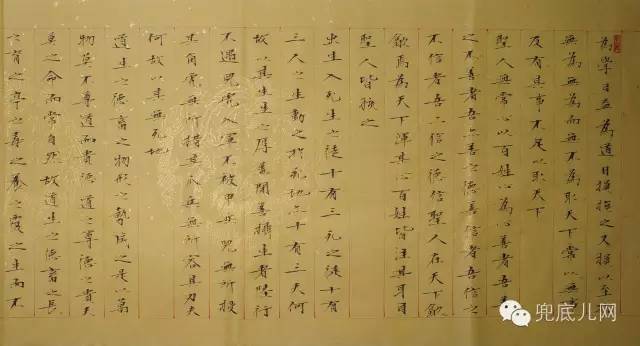 為學日益為道日損損之又損以至
無為無為而無不為取天下常以無事
及有其事不足以取天下
聖人無常心以百姓心為心善者吾善
之不善者吾亦善之德善信者吾信之
不信者吾亦信之德信聖人在天下歙
歙焉為天下渾其心百姓皆注其耳目
聖人皆孩之
出生入死生之徒十有三死之徒十有
三人之生動之於死地亦十有三夫何
故以其生生之厚蓋聞善攝生者陸行
不遇兕虎入軍不被甲兵兕無所投
其角虎無所措其爪兵無所容其刃夫
何故以其無死地
道生之德畜之物形之勢成之是以萬
物莫不尊道而貴德道之尊德之貴夫
莫之命而常自然故道生之德畜之長
之育之亭之毒之養之覆之生而不
兜底儿网